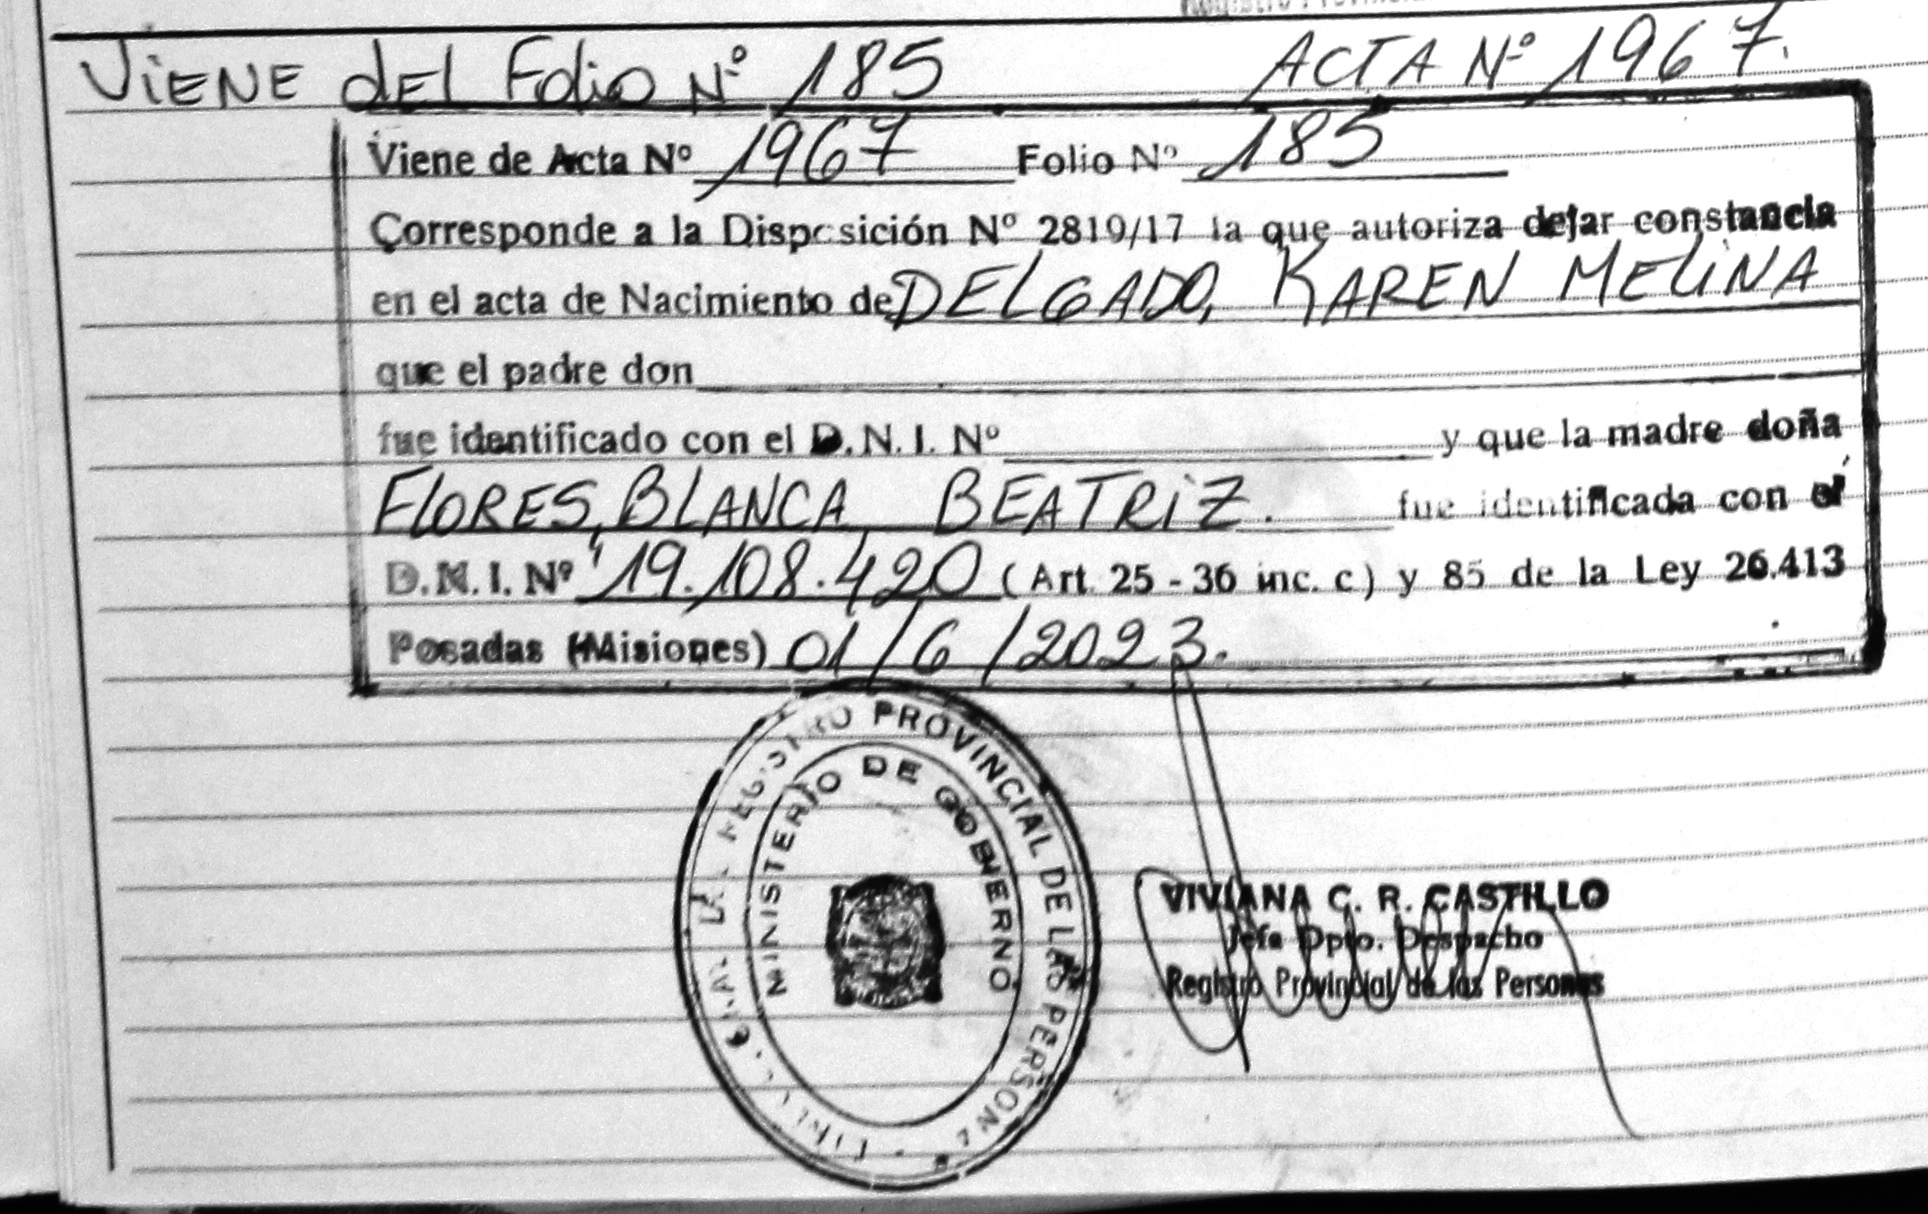 ViENE dEL Folio Nº 185 ACTA Nº 1967.
Viene de Acta Nº 1967 Folio Nº 185
Corresponde a la Disposición Nº 2819/17 la que autoriza dejar constancia
en el acta de Nacimiento de DELGADO, KAREN MELINA
que el padre don
fue identificado con el D.N.I. Nº y que la madre doña
FLORES, BLANCA BEATRIZ. fue identificada con el
D.N.I. Nº 19.108.420 (Art. 25 - 36 inc. c) y 85 de la Ley 26.413
Posadas (Misiones) 01/6/2023.
REGISTRO PROVINCIAL DE LAS PERSONAS
MINISTERIO DE GOBIERNO
VIVIANA C. R. CASTILLO
Jefa Dpto. Despacho
Registro Provincial de las Personas